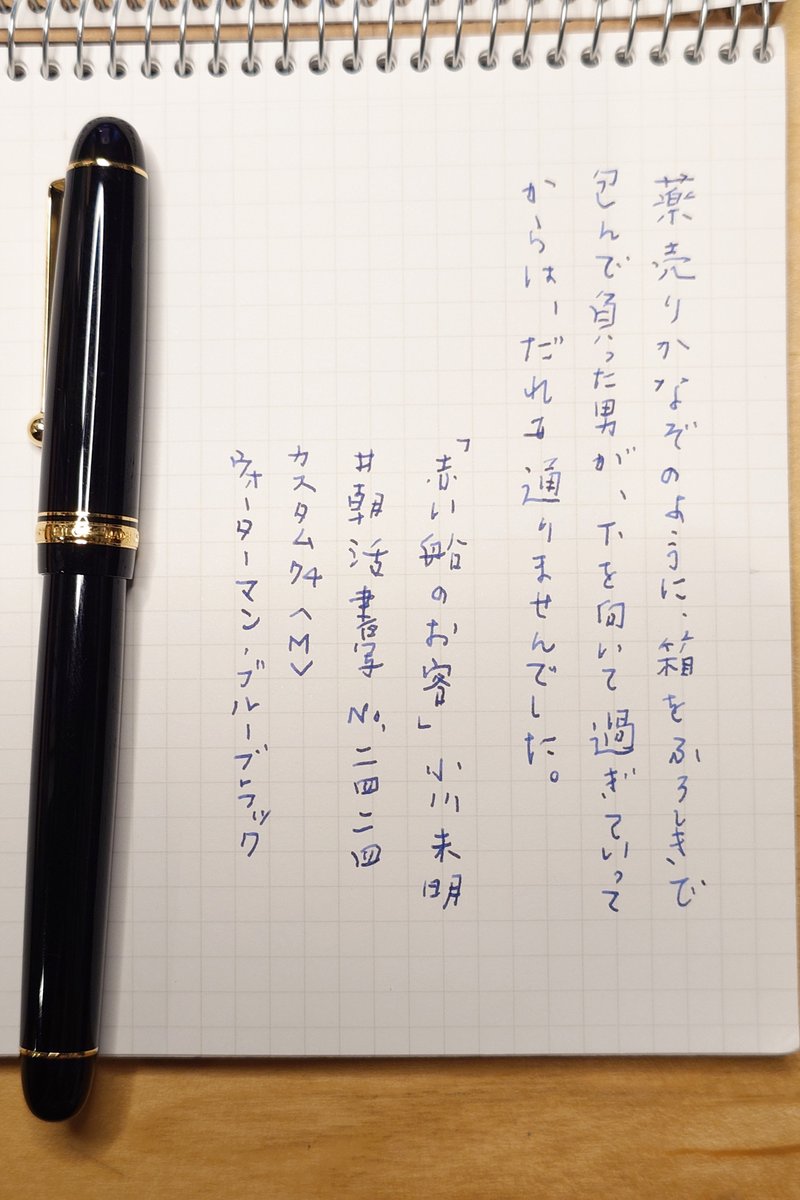 薬売りかなぞのように、箱をふろしきで
包んで負った男が、下を向いて過ぎていって
からは、だれも通りませんでした。
「赤い船のお客」小川未明
#朝活書写 No.二四二四
カスタム74〈M〉
ウォーターマン・ブルーブラック